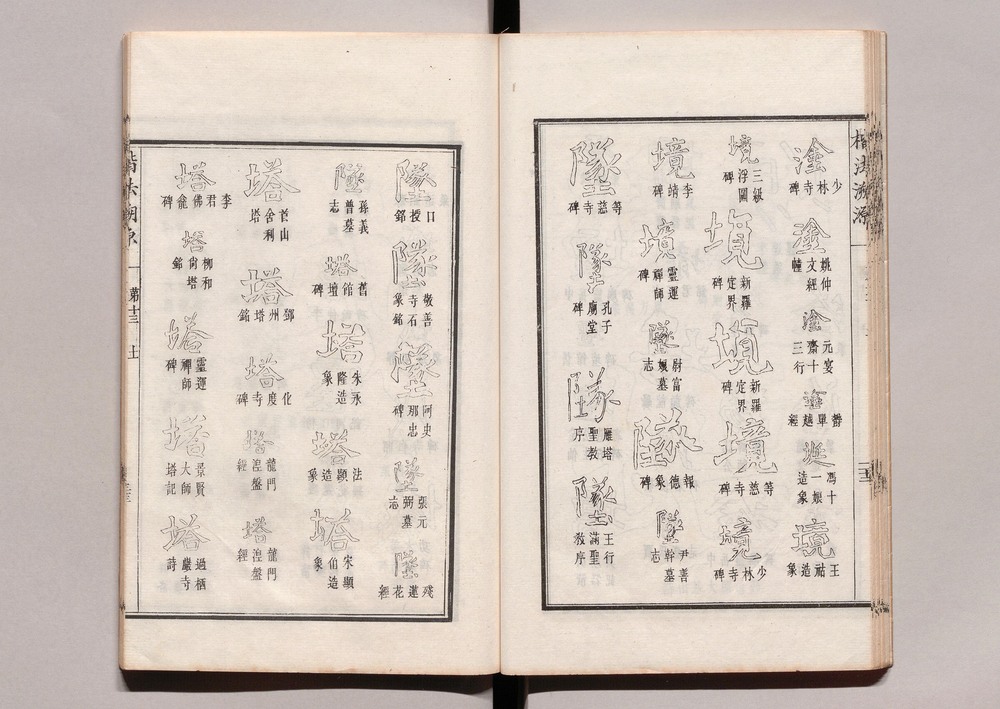 楷法溯源
塗 少林寺碑
塗 姚仲文經幢
塗 元宴齋十三行
塗 鬱單越經
塗 馮十一娘造象
境 王祜造象
境 三級浮圖碑
境 新羅定界碑
境 新羅定界碑
境 等慈寺碑
境 少林寺碑
境 李靖碑
境 靈運禪師碑
墜 尉富娘墓志
墜 報德象碑
墜 尹善幹墓志
墜 等慈寺碑
墜 孔子廟堂碑
墜 雁塔聖教序
墜 王行滿聖教序
墜 口授銘
墜 敬善寺石象銘
墜 阿史那忠碑
墜 張元弼墓志
墜 殘蓮花經
墜 孫義普墓志
塔 舊館壇碑
塔 朱永隆造象
塔 法顯造象
塔 宋顯伯造象
塔 首山舍利塔
塔 鄧州塔銘
塔 化度寺碑
塔 龍門湼盤經
塔 龍門湼盤經
塔 李君佛龕碑
塔 柳尚和塔銘
塔 靈運禪師碑
塔 景賢大師塔記
塔 過栖嚴寺詩
楷法溯原 第十三 土